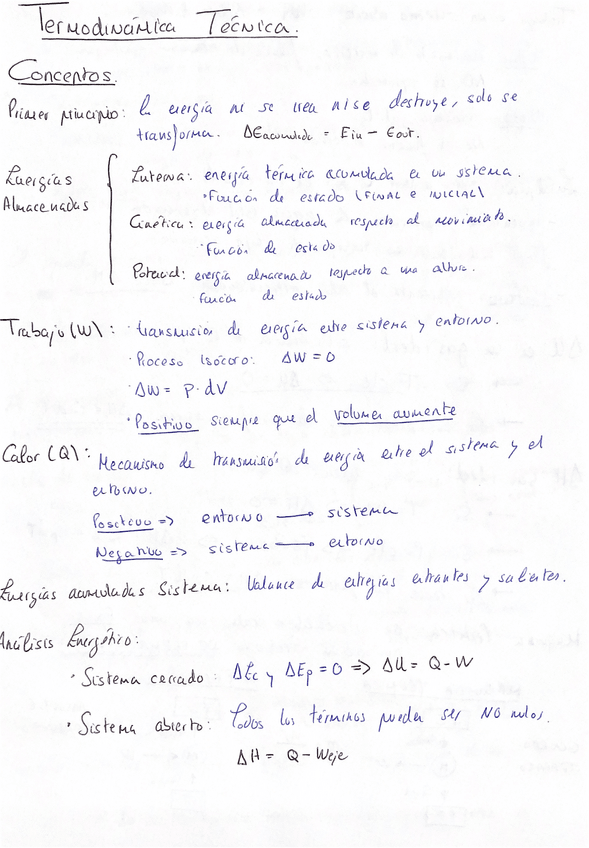 Termodinámica Técnica.
Conceptos.
Primer principio: la energía ni se crea ni se destruye, solo se
transforma. ΔEacumulado = Ein - Eout.
Energías Almacenadas
Interna: energía térmica acumulada en un sistema.
· Función de estado (FINAL e INICIAL)
Cinética: energía almacenada respecto al movimiento.
· Función de estado
Potencial: energía almacenada respecto a una altura.
función de estado
Trabajo (W): · transmisión de energía entre sistema y entorno.
· Proceso Isócoro: ΔW = 0
· ΔW = P · dV
· Positivo siempre que el volumen aumente
Calor (Q): Mecanismo de transmisión de energía entre el sistema y el
entorno.
Positivo => entorno → sistema
Negativo => sistema → entorno
Energías acumuladas Sistema: Valance de energias entrantes y salientes.
Análisis Energético:
· Sistema cerrado: ΔEc y ΔEp = 0 => ΔU = Q - W
· Sistema abierto: Todos los términos pueden ser NO nulos.
ΔH = Q - Weje